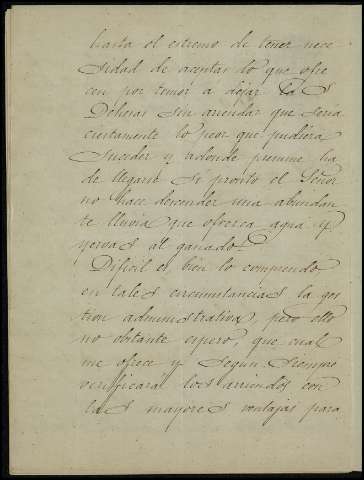 hasta el estremo de tener nece
sidad de aceptar lo que ofre
cen por temor a dejar las
Dehesas sin arrendar que seria
ciertamente lo peor que pudiera
suceder y adonde presume ha
de llegarse si pronto el Señor
no hace descender una abundan
te lluvia que ofrezca agua y
yervas al ganado.
Dificil es bien lo comprendo
en tales circunstancias la ges
tion administrativa, pero ello
no obstante espero, que cual
me ofrece y segun siempre
verificará los arriendos con
las mayores ventajas para